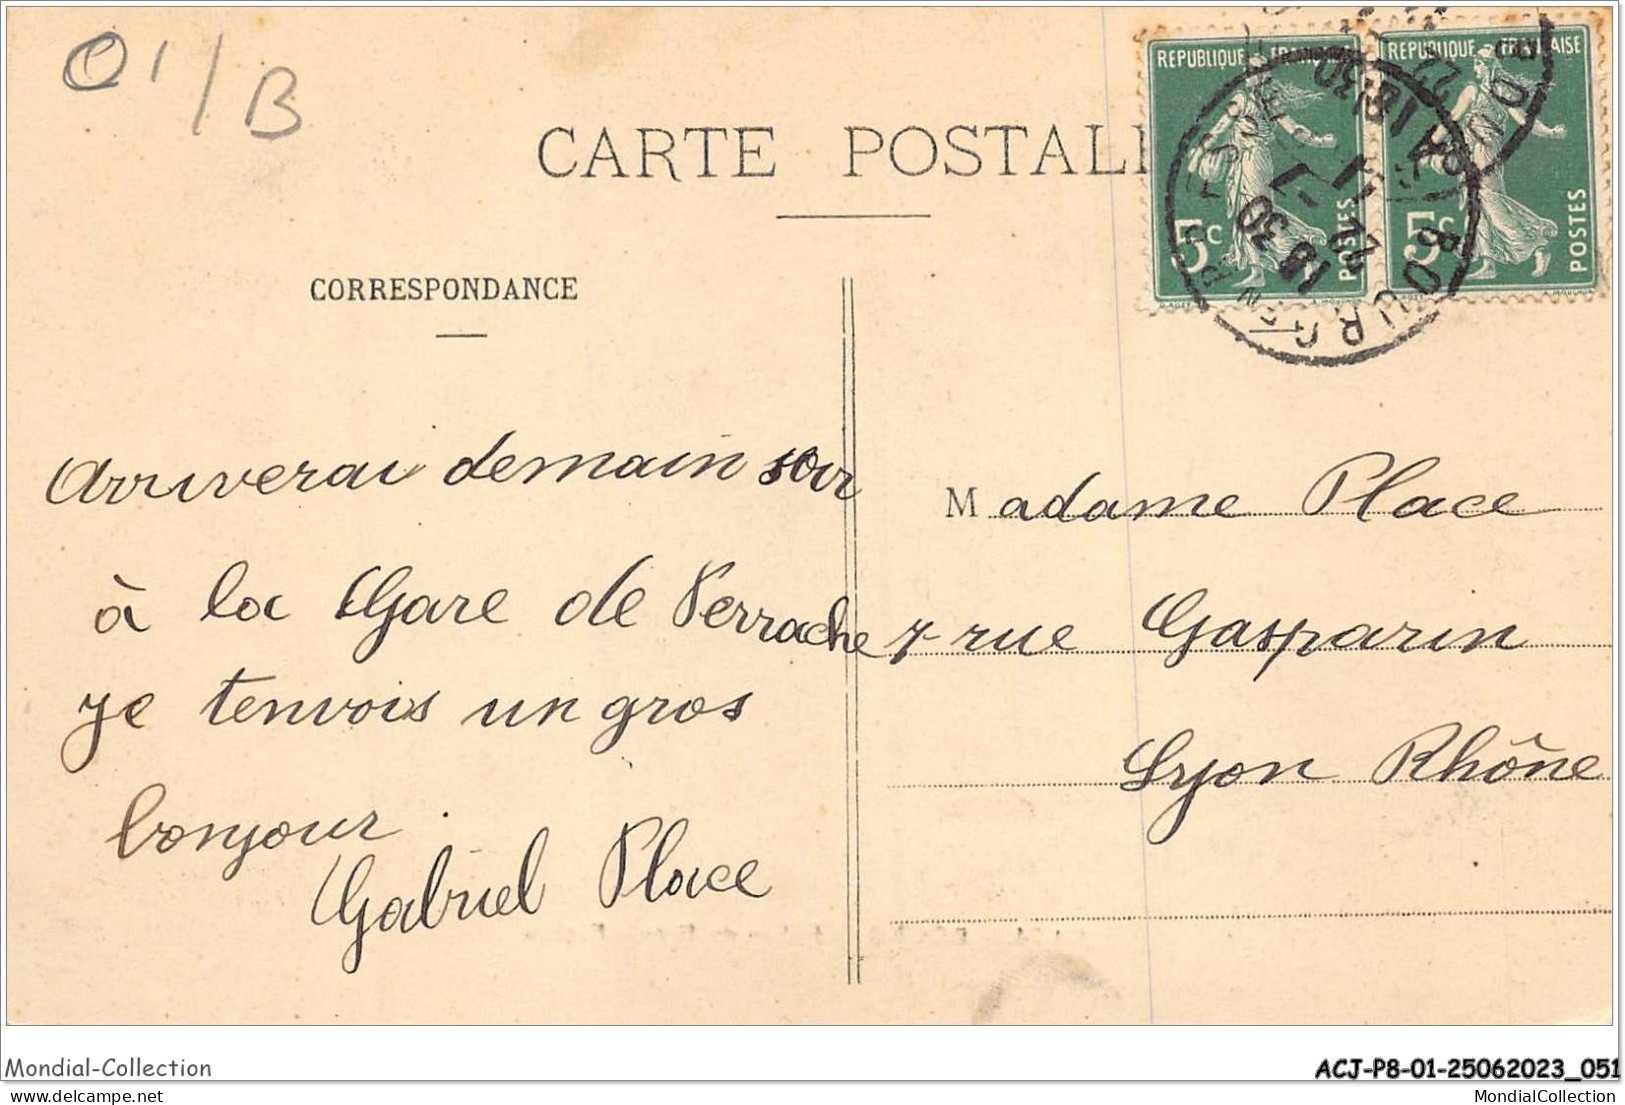 01/B
CARTE POSTALE
REPUBLIQUE FRANÇAISE
5c
POSTES
REPUBLIQUE FRANÇAISE
5c
POSTES
BOURG
CORRESPONDANCE
Arriverai demain soir
à la Gare de Perrache
je tenvois un gros
bonjour
Gabriel Place
Madame Place
7 rue Gasparin
Lyon Rhône
Mondial-Collection
ACJ-P8-01-25062023_051
MondialCollection